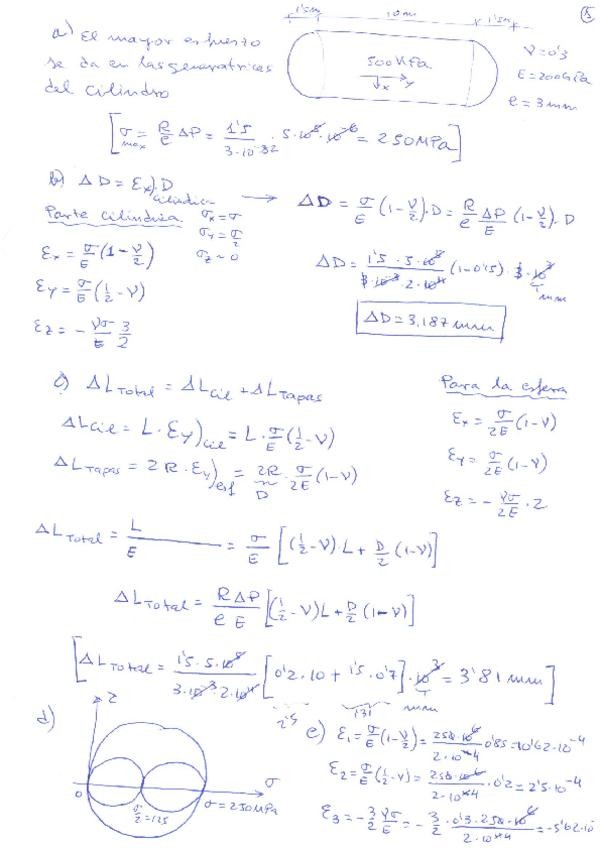 5
1'5m 10m 1'5m
a) El mayor esfuerzo
se da en las generatrices
del cilindro
500 KPa
x y
ν=0'3
E=200GPa
e=3mm
[σmax = R/e ΔP = 1'5/3·10^-3 · 5·10^5 · 10^-6 = 250MPa]
b) ΔD = εx)cilíndrica · D → ΔD = σ/E (1-ν/2)·D = R/e ΔP/E (1-ν/2)·D
Parte cilíndrica
σx = σ
σy = σ/2
σz ≈ 0
εx = σ/E (1-ν/2)
εy = σ/E (1/2-ν)
εz = -νσ/E 3/2
ΔD = 1'5·5·10^5/3·10^-3·2·10^11 (1-0'15)·3·10^3 mm
ΔD = 3,187 mm
c) ΔLTotal = ΔLcil + ΔLTapas
ΔLcil = L·εy)cil = L·σ/E (1/2-ν)
ΔLTapas = 2R·εy)esf = 2R·σ/2E (1-ν)
D
Para la esfera
εx = σ/2E (1-ν)
εy = σ/2E (1-ν)
εz = -νσ/2E ·2
ΔLTotal = L/E = σ/E [(1/2-ν)·L + D/2 (1-ν)]
ΔLTotal = R/e ΔP/E [(1/2-ν)L + D/2 (1-ν)]
[ΔLTotal = 1'5·5·10^5/3·10^-3·2·10^11 [0'2·10 + 1'5·0'7]·10^3 = 3'81 mm]
2'5 1'31 mm
d)
τ
σ
0
σ/2=125
σ=250MPa
e) ε1 = σ/E (1-ν/2) = 250·10^6/2·10^11 0'85 = 10'62·10^-4
ε2 = σ/E (1/2-ν) = 250·10^6/2·10^11 ·0'2 = 2'5·10^-4
ε3 = -3/2 νσ/E = -3/2 · 0'3·250·10^6/2·10^11 = -5'62·10